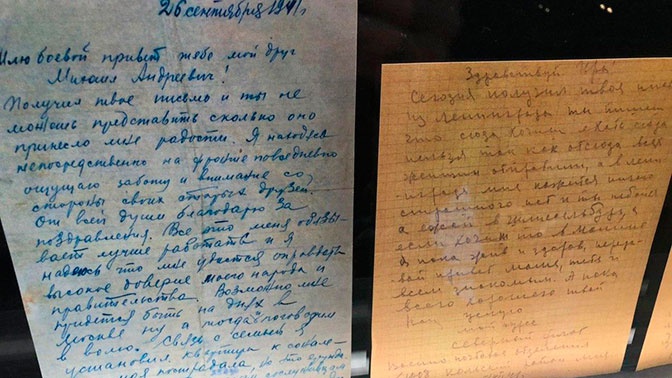 26 сентября 1941 г.
Шлю боевой привет тебе мой друг
Михаил Андреевич!
Получил твое письмо и ты не
можешь представить сколько оно
принесло мне радости. Я находясь
непосредственно на фронте повседневно
ощущаю заботу и внимание со
стороны своих старых друзей.
От всей души благодарю за
поздравления. Все это меня обязы-
вает лучше работать и я
надеюсь что мне удастся оправдать
высокое доверие моего народа и
правительства. Возможно мне
придется быть на днях в
Москве ну а тогда поговорим
в волю. Связь с семьей я
установил, квартира к сожале-
нию пострадала, но это
Здравствуй
Сегодня получил твоя
из Ленинграда ты пишешь
что сюда хочешь ехать сюда
нельзя так как отсюда всех
отправили, а в Ленин-
граде мне кажется ничего
страшного нет и ты
а езжай в
если хочешь то в
Я пока жив и здоров, переда-
вай привет маме, тебе и
всем знакомым. А пока
всего хорошего твой
целую
мой адрес
Северный флот